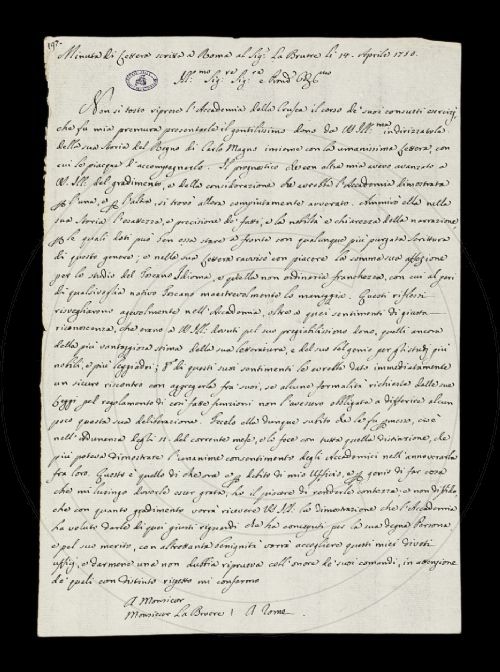 197.
Minuta di Lettera scritta a Roma al Sigr. La Bruere li 14. Aprile 1750.
Ill:mo Sigre Sigre e Pron:
Non sì tosto riprese l'Accademia della Crusca il corso de' suoi consueti esercizj,
che fu mia premura presentarle il gentilissimo dono da VS Ill:ma indirizzatole
della sua Storia del Regno di Carlo Magno insieme con la umanissima Lettera, con
cui le piacque d'accompagnarlo. Il prognostico che con altra mia avevo avanzato a
VS. Ill. del gradimento, e della considerazione che avrebbe l'Accademia dimostrata
p l'una, e p l'altra, si trovò allora compiutamente avverato. Ammirò ella nella
sua Storia l'esattezza, e precisione de' fatti, e la nobiltà e chiarezza della narrazione
p le quali doti può ben essa stare a fronte con qualunque più purgata Scrittura
di questo genere; e nella sua Lettera ravvisò con piacere la somma sua affezione
per lo studio del Toscano Idioma, e quella non ordinaria franchezza, con cui al pari
di qualsivoglia nativo Toscano maestrevolmente lo maneggia. Questi riflessi
risvegliarono agevolmente nell'Accademia, oltre a quei sentimenti di giusta
riconoscenza, che erano a VS Ill. dovuti pel suo pregiatissimo dono, quelli ancora
della più vantaggiosa stima della sua Letteratura, e del suo bel genio per gli studj più
nobili, e più leggiadri; di questi suoi sentimenti le avrebbe dato immediatamente
un sicuro riscontro con aggregarla fra' suoi, se alcune formalità richieste dalle sue
Leggi pel regolamento di così fatte funzioni non l'avessero obbligata a differire alcun
poco questa sua deliberazione. Fecelo ella dunque subito che le fu p messo, cioè
nell'Adunanza degli 11. del corrente mese, e lo fece con tutta quella distinzione, che
più poteva dimostrare l'unanime consentimento degli Accademici nell'annoverarla
fra loro. Questo è quello di che ora e p debito di mio Uffizio, e p genio di far cosa
che mi lusingo doverle esser grata, ho il piacere di renderla contezza, e non diffido,
che con quanto gradimento vorrà ricevere VS. Ill. la dimostrazione che l'Accademia
ha voluto darle di quei giusti riguardi che ha concepiti per la sua degna Persona,
e pel suo merito, con altrettanta benignità vorrà accogliere questi miei divoti
uffizj, e darmene una non dubbia riprova coll'onore de' suoi comandi, in attenzione
de' quali con distinto rispetto mi confermo
A Monsieur
Monsieur La Bruere A Rome.